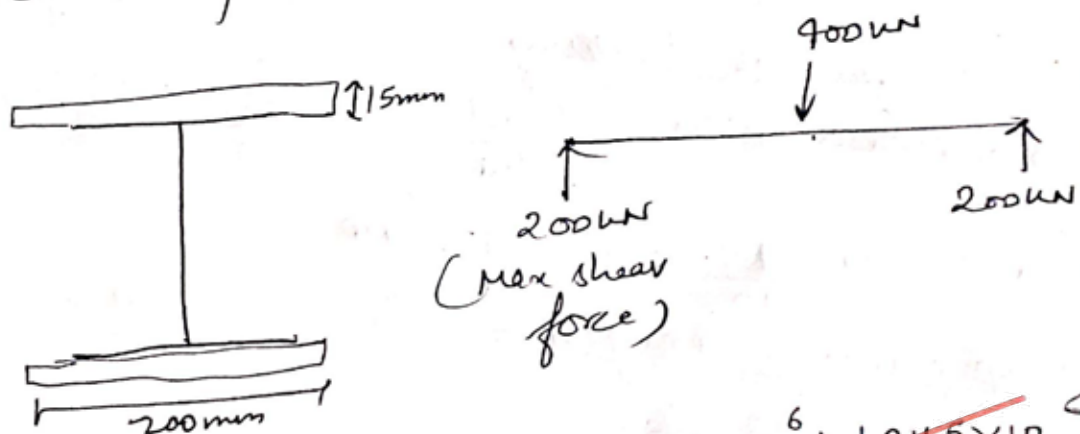 15mm
200mm
400kN
200kN
(Max shear
force)
200kN
6